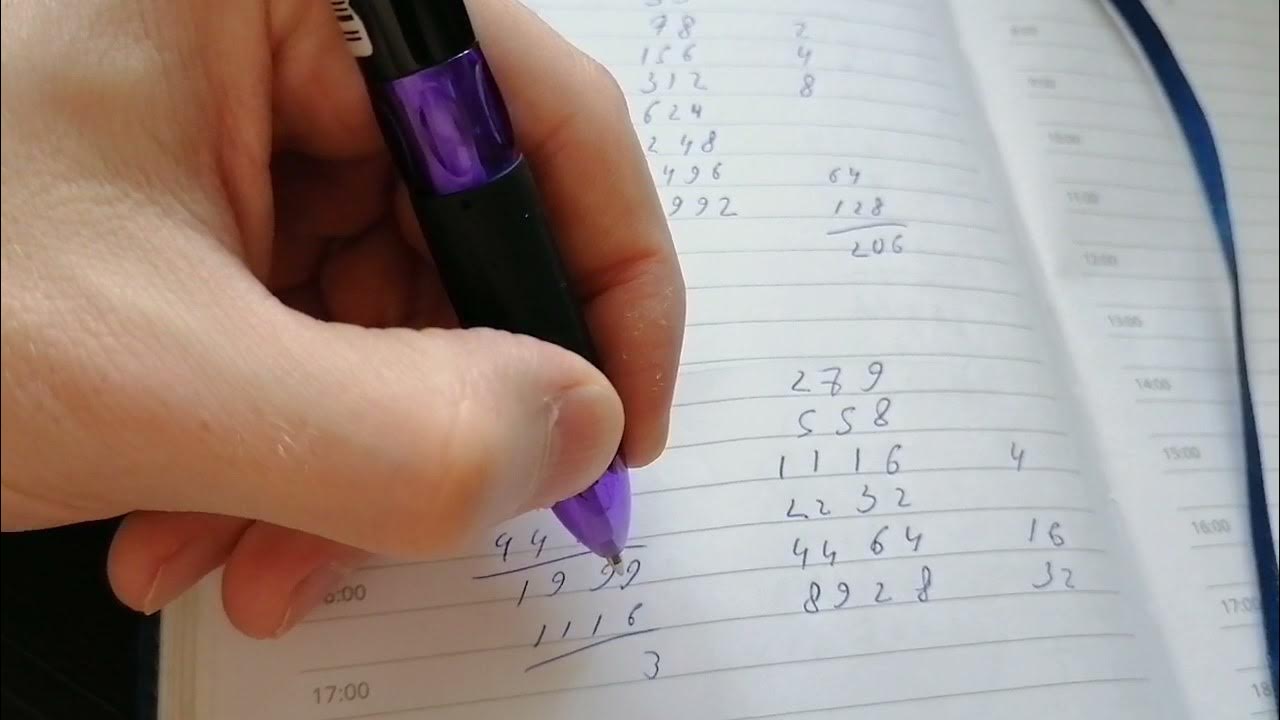 78 2
156 4
312 8
624
248
496 64
992 128
206
279
558
1116 4
2232
4464 16
8928 32
44
1999
1116
3
9:00
10:00
11:00
12:00
13:00
14:00
15:00
16:00
17:00
18
:00
17:00